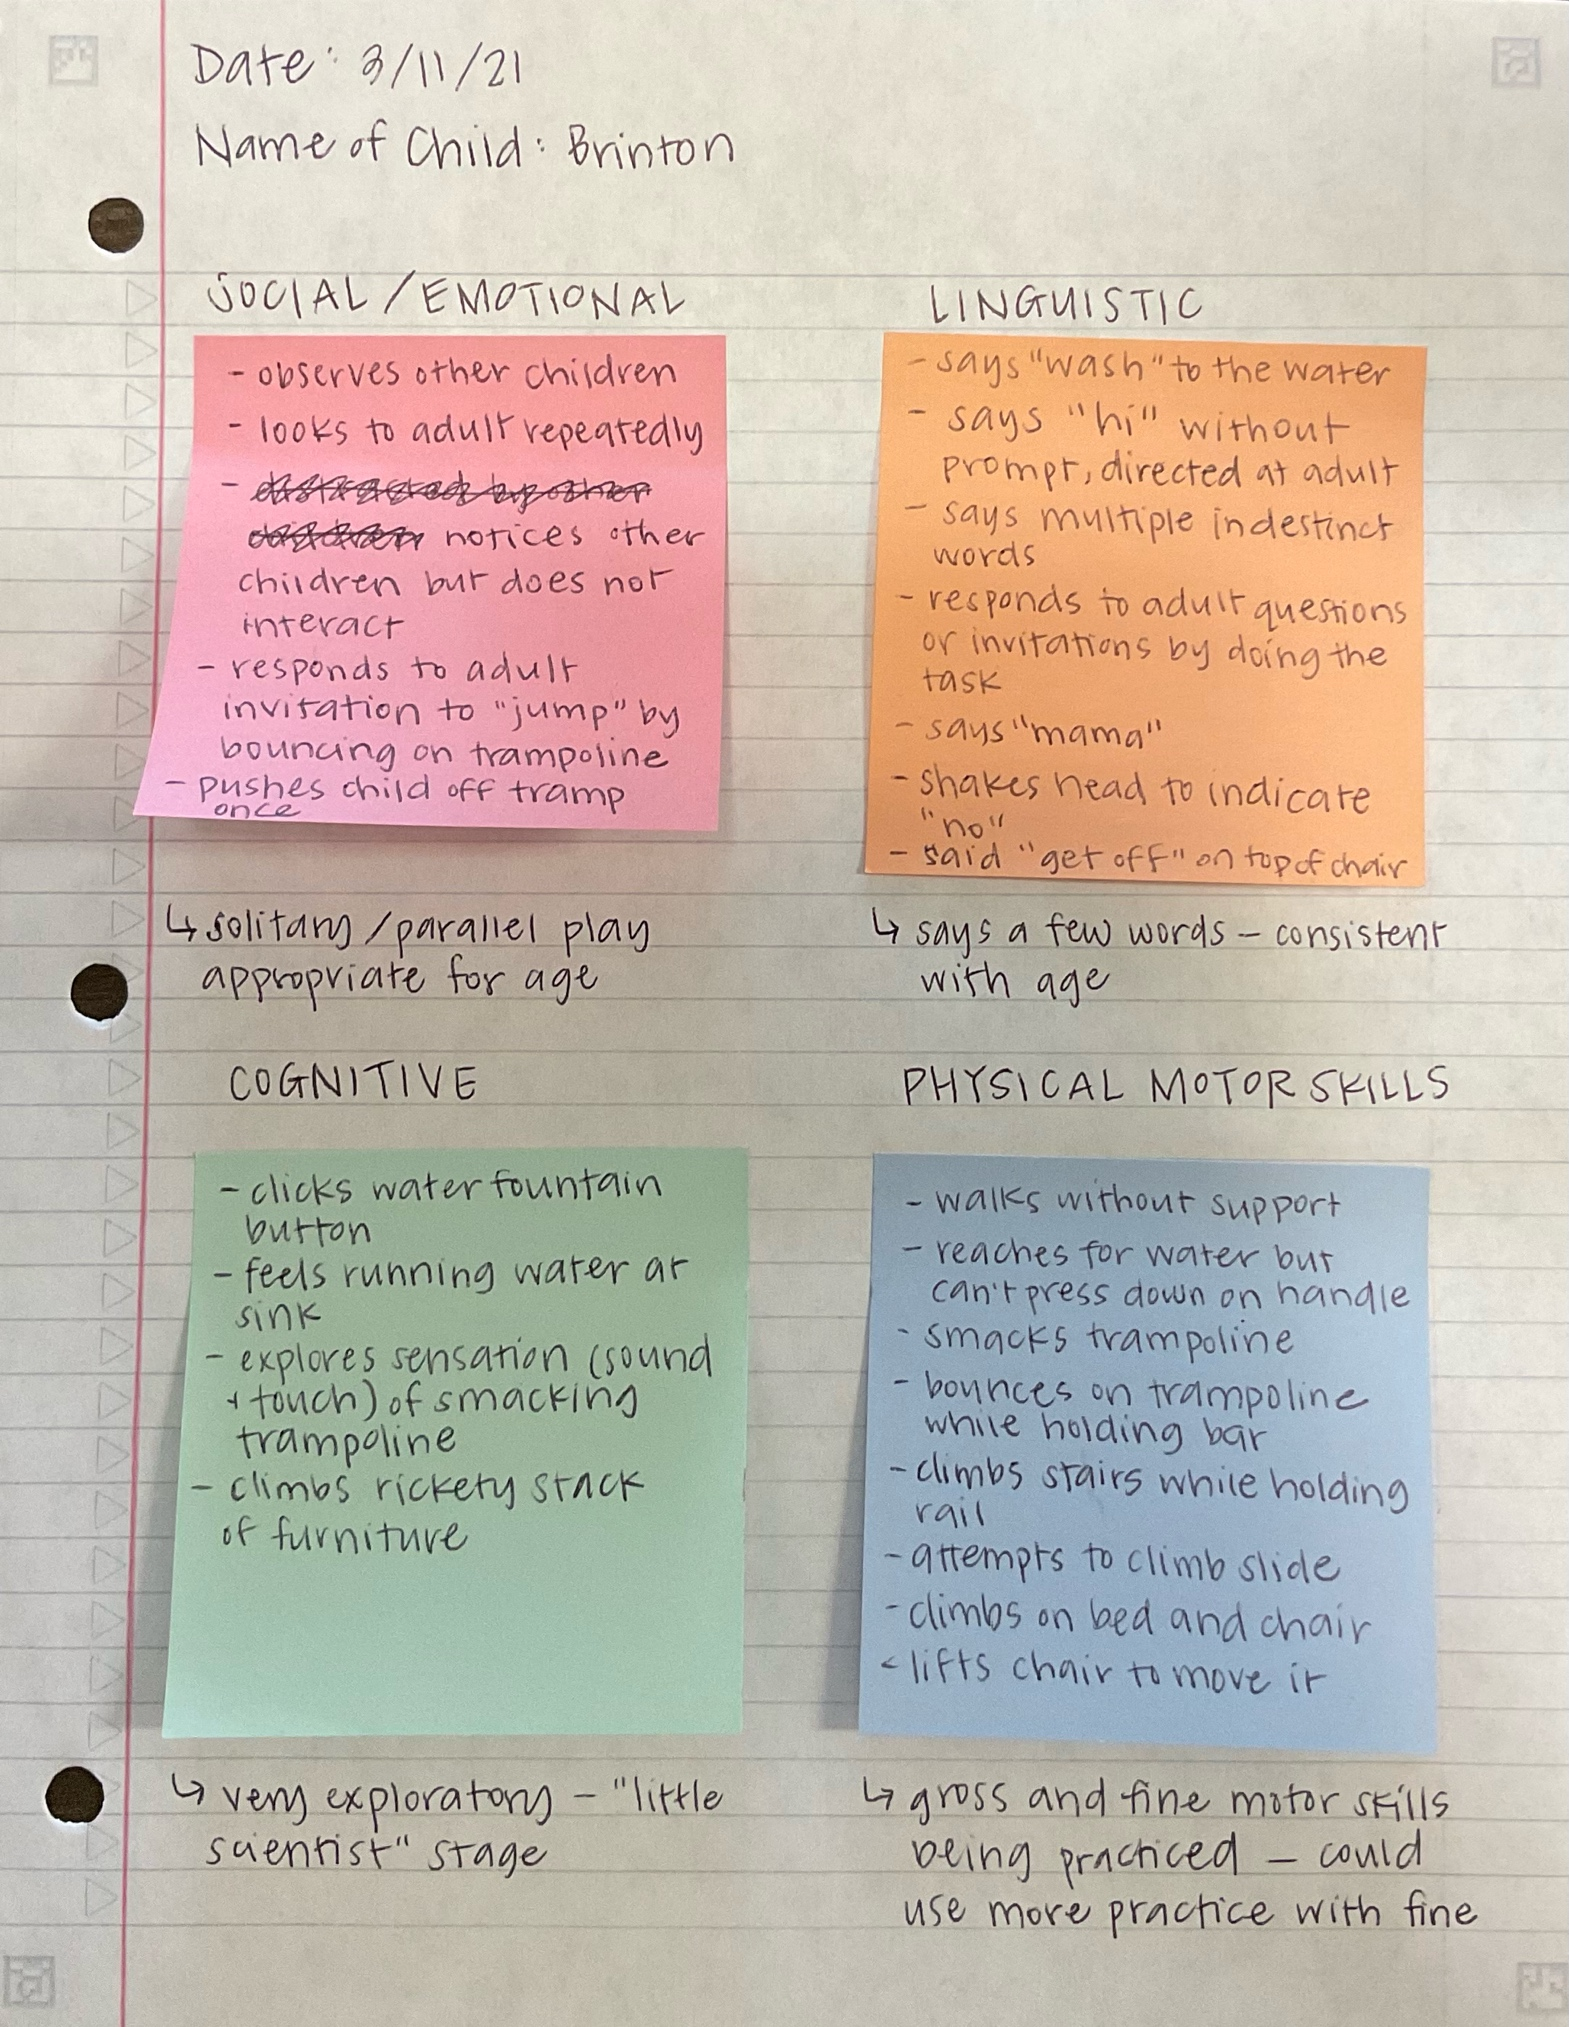 Date: 3/11/21
Name of Child: Brinton
SOCIAL/EMOTIONAL
- observes other children
- looks to adult repeatedly
- distracted by other
children notices other
children but does not
interact
- responds to adult
invitation to "jump" by
bouncing on trampoline
- pushes child off tramp
once
↳ solitary/parallel play
appropriate for age
LINGUISTIC
- says "wash" to the water
- says "hi" without
prompt, directed at adult
- says multiple indestinct
words
- responds to adult questions
or invitations by doing the
task
- says "mama"
- shakes head to indicate
"no"
- said "get off" on top of chair
↳ says a few words - consistent
with age
COGNITIVE
- clicks water fountain
button
- feels running water at
sink
- explores sensation (sound
+ touch) of smacking
trampoline
- climbs rickety stack
of furniture
↳ very exploratory - "little
scientist" stage
PHYSICAL MOTOR SKILLS
- walks without support
- reaches for water but
can't press down on handle
- smacks trampoline
- bounces on trampoline
while holding bar
- climbs stairs while holding
rail
- attempts to climb slide
- climbs on bed and chair
- lifts chair to move it
↳ gross and fine motor skills
being practiced - could
use more practice with fine